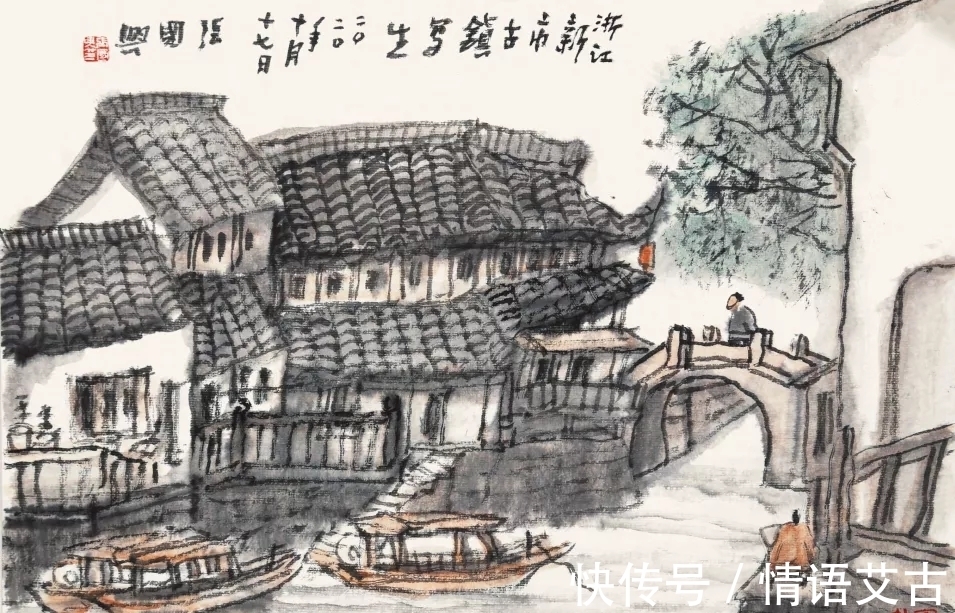 浙江新市古鎮写生二〇二〇年十月十七日張國興
快传号 / 情语艾古